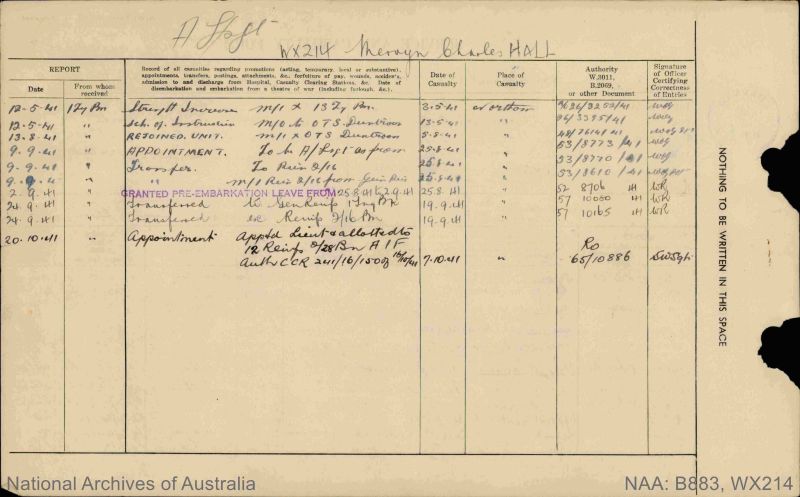 A/Sgt
WX214 Mervyn Charles HALL
REPORT
Date
From whom received
Record of all casualties regarding promotions (acting, temporary, local or substantive), appointments, transfers, postings, attachments, &c., forfeiture of pay, wounds, accidents, admission to and discharge from Hospital, Casualty Clearing Stations, &c. Date of disembarkation and embarkation from a theatre of war (including furlough, &c.).
Date of Casualty
Place of Casualty
Authority W.3011, B.2069, or other Document
Signature of Officer Certifying Correctness of Entries
12-5-41 Strength Increase M/I X 13 Tg Bn. 3-5-41
12-5-41 " Sch. of Instruction M/O to O T S Duntroon 13-5-41 "
13-8-41 " REJOINED. UNIT. M/I X O T S Duntroon 5-8-41 "
9-9-41 " APPOINTMENT. To be A/Sgt as from 25-8-41 " 53/8773/41
9-9-41 " Transfer. To Rein 2/16 " 53/8770/41
" " M/I Rein 2/16 from " 53/8610/41
GRANTED PRE-EMBARKATION LEAVE FROM 25.8.41 to 2.9.41 25.8.41 " 52 8706 41
24.9.41 " Transferred to Gen Reinfs 1 Trg Bn 19.9.41 " 57 10080 41
24.9.41 " Transferred ex Reinfs 2/16 Bn 19.9.41 " 57 10165 41
20.10.41 " Appointment Apptd Lieut & allotted to
12 Reinfs 2/28 Bn A I F
Auth CCR 241/16/150 of 7-10-41 Ro 65/10886
NOTHING TO BE WRITTEN IN THIS SPACE
National Archives of Australia
NAA: B883, WX214